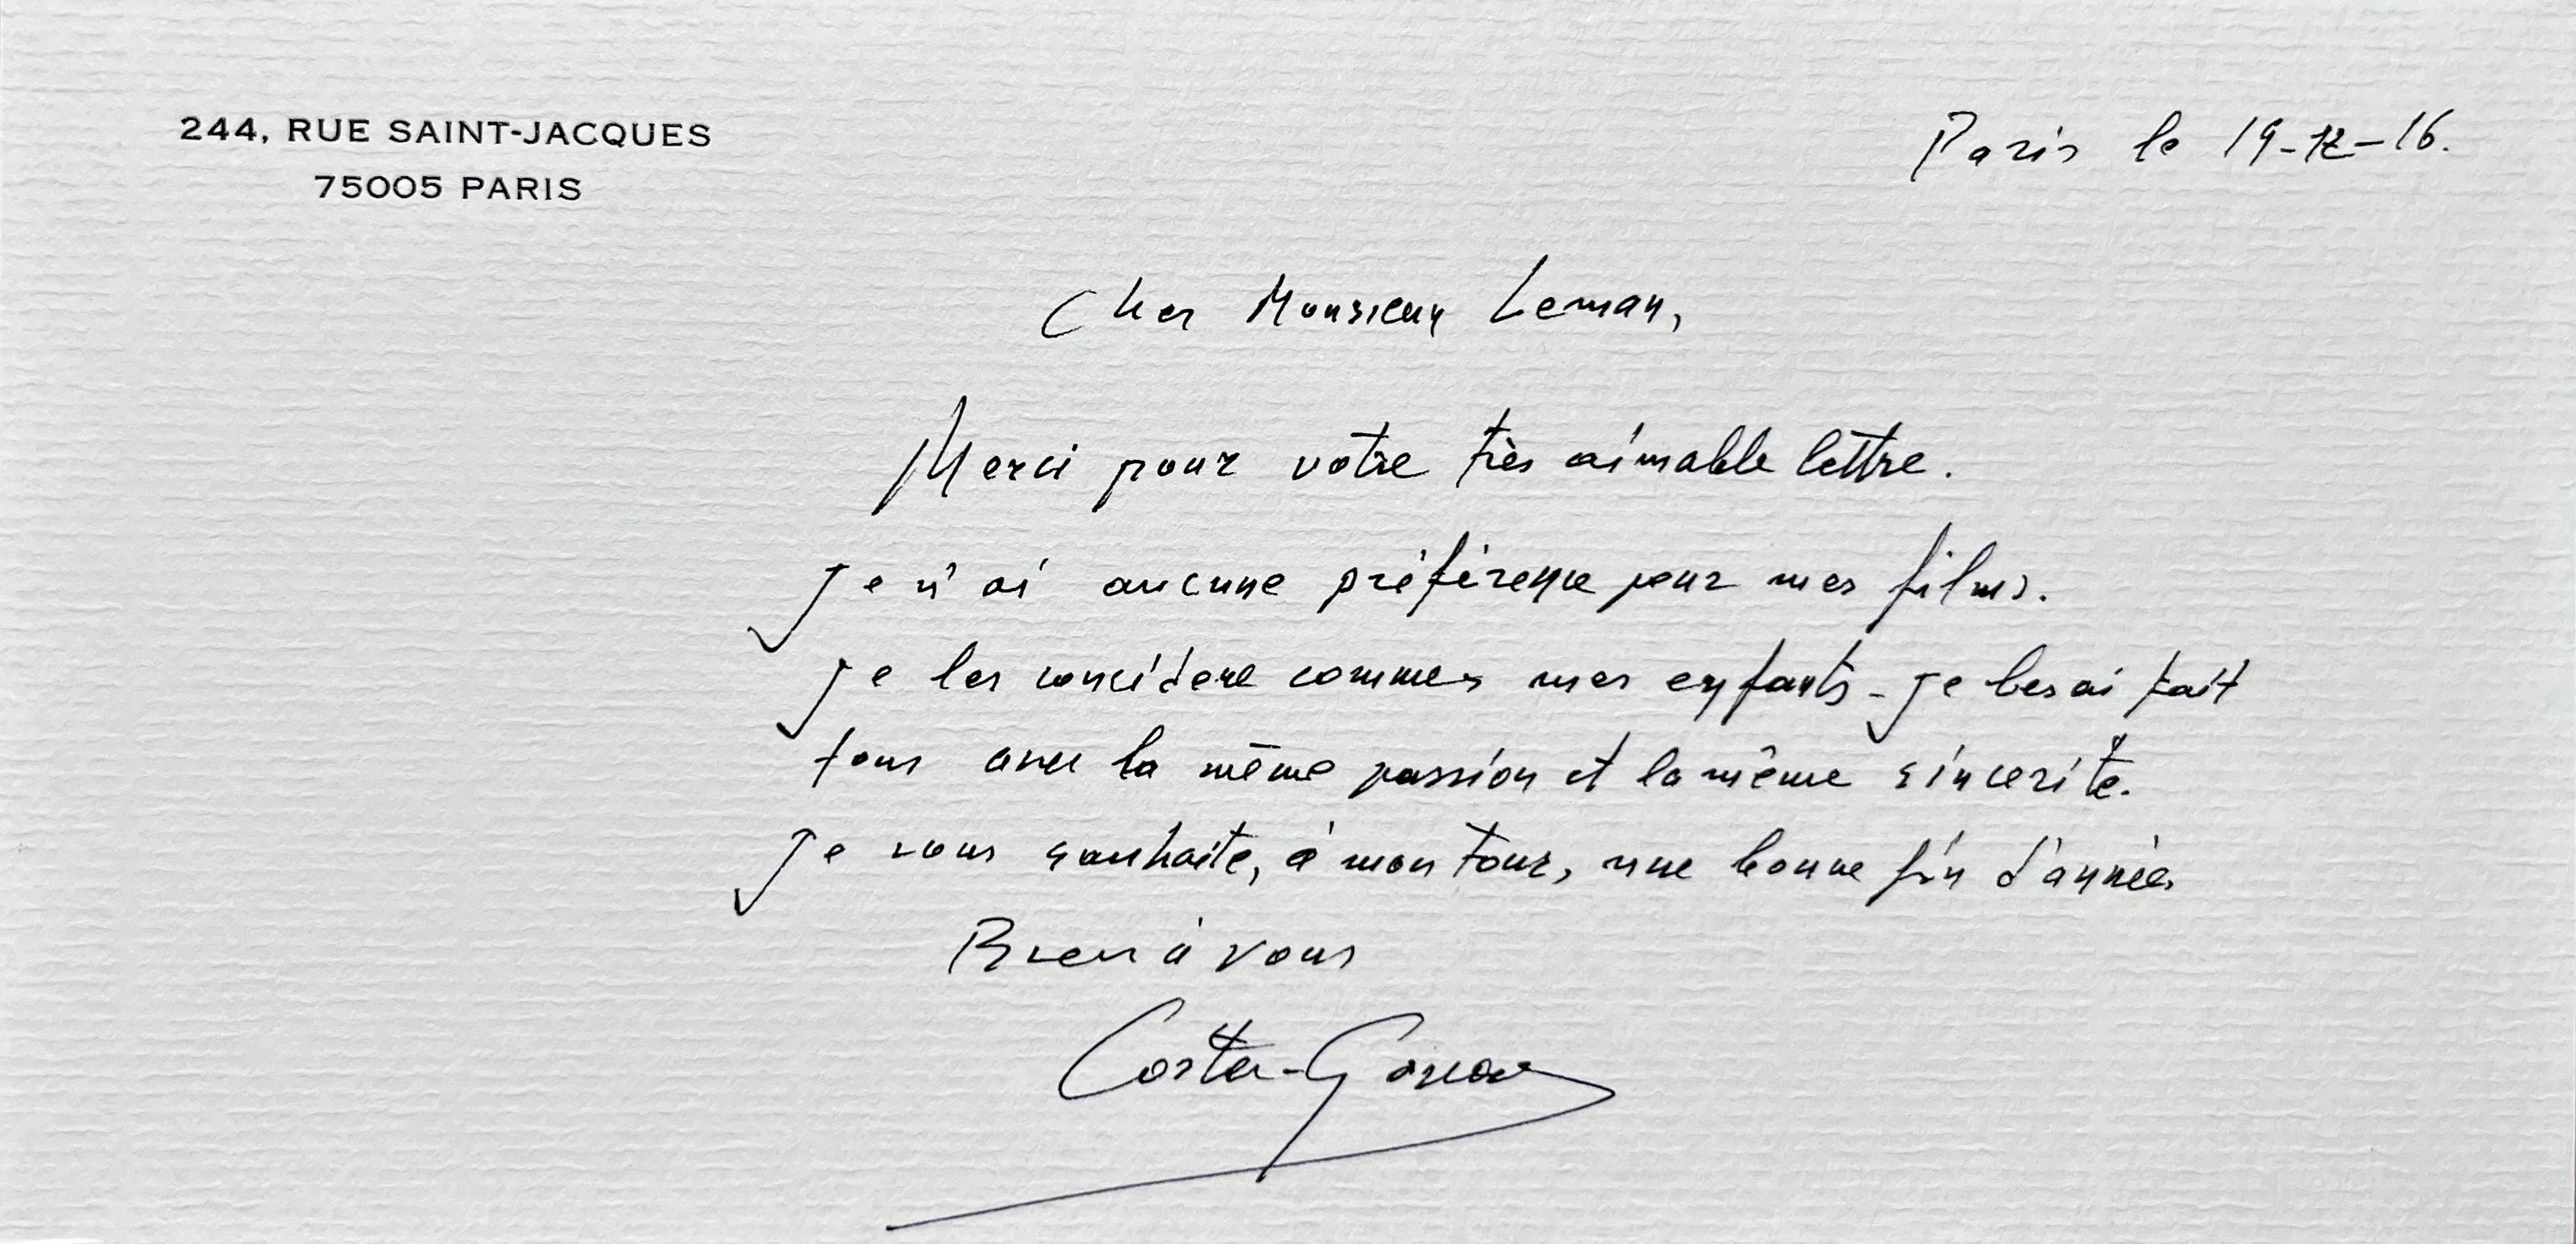 244, RUE SAINT-JACQUES
75005 PARIS
Paris le 19-12-16.
Cher Monsieur Leman,
Merci pour votre très aimable lettre.
Je n'ai aucune préférence pour mes films.
Je les concidere commes mes enfants - Je les ai fait
tous avec la même passion et la même sincerité.
Je vous souhaite, à mon tour, une bonne fin d'année,
Bien à vous
Costa-Gavras